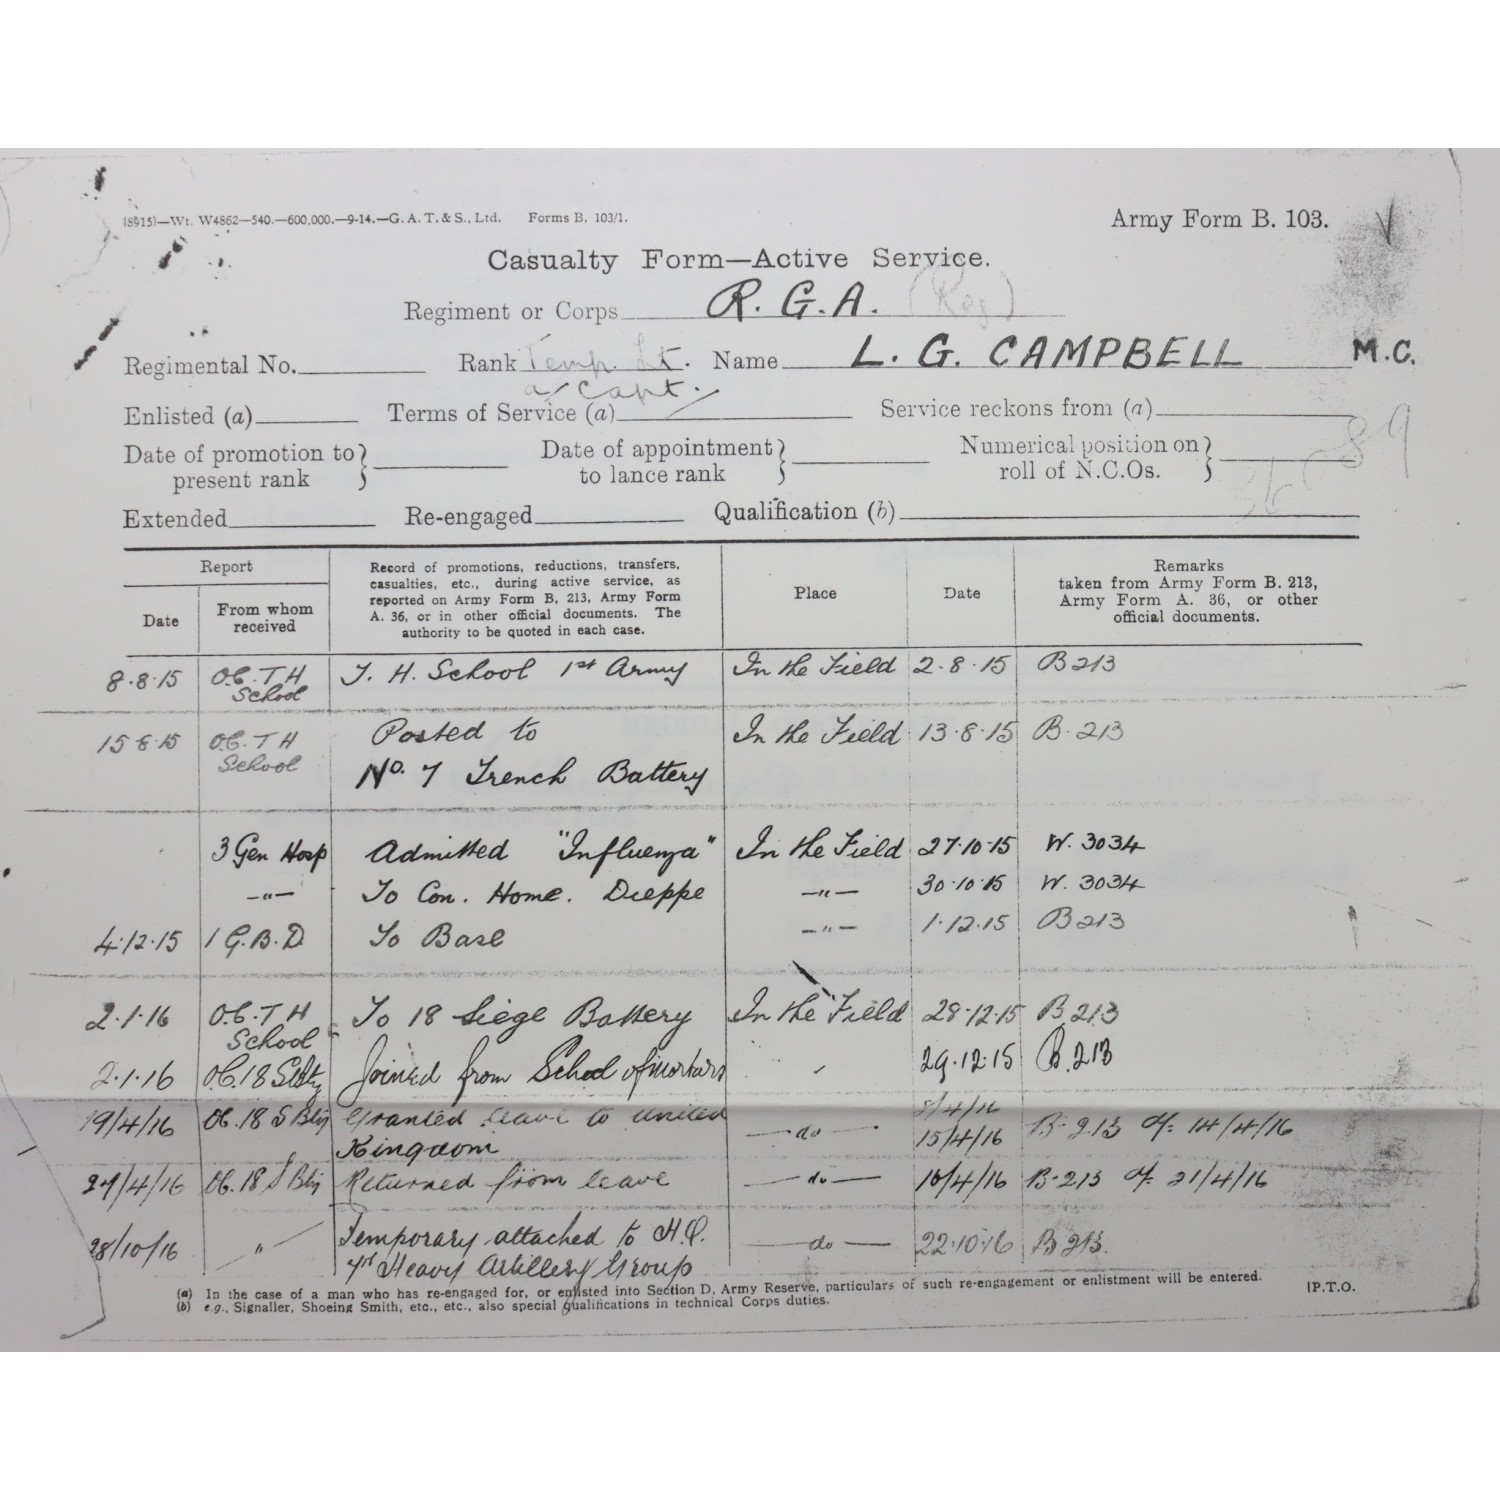 (8915)—Wt. W4862—540.—600,000.—9-14.—G. A. T. & S., Ltd. Forms B. 103/1.
Army Form B. 103.
Casualty Form—Active Service.
Regiment or Corps R. G. A. (Reg)
Regimental No. Rank Temp. Lt. Name L. G. CAMPBELL M.C.
a/Capt.
Enlisted (a) Terms of Service (a) Service reckons from (a)
89
Date of promotion to present rank } Date of appointment to lance rank } Numerical position on roll of N.C.Os. }
Extended Re-engaged Qualification (b)
Report
Date
From whom received
Record of promotions, reductions, transfers,
casualties, etc., during active service, as
reported on Army Form B, 213, Army Form
A. 36, or in other official documents. The
authority to be quoted in each case.
Place
Date
Remarks
taken from Army Form B. 213,
Army Form A. 36, or other
official documents.
8.8.15 O.C. T H School T. H. School 1st Army In the Field 2.8.15 B 213
15 8 15 O.C. T H School Posted to In the Field 13.8.15 B. 213
No. 7 Trench Battery
3 Gen Hosp Admitted "Influenza" In the Field 27.10.15 W. 3034
—"— To Con. Home. Dieppe —"— 30.10.15 W. 3034
4.12.15 1 G.B.D. To Base —"— 1.12.15 B 213
2.1.16 O.C. T H School To 18 Siege Battery In the Field 28.12.15 B 213
2.1.16 OC. 18 S Bty Joined from School of mortars " 29.12.15 B. 213
19/4/16 OC. 18 S Bty Granted leave to United 8/4/16
Kingdom —do— 15/4/16 B. 213 of 14/4/16
27/4/16 OC. 18 S Bty Returned from leave —do— 10/4/16 B. 213 of 21/4/16
28/10/16 " Temporary attached to H.Q. —do— 22.10.16 B 213.
Heavy Artillery Group
(a) In the case of a man who has re-engaged for, or enlisted into Section D, Army Reserve, particulars of such re-engagement or enlistment will be entered. [P.T.O.
(b) e.g., Signaller, Shoeing Smith, etc., etc., also special qualifications in technical Corps duties.